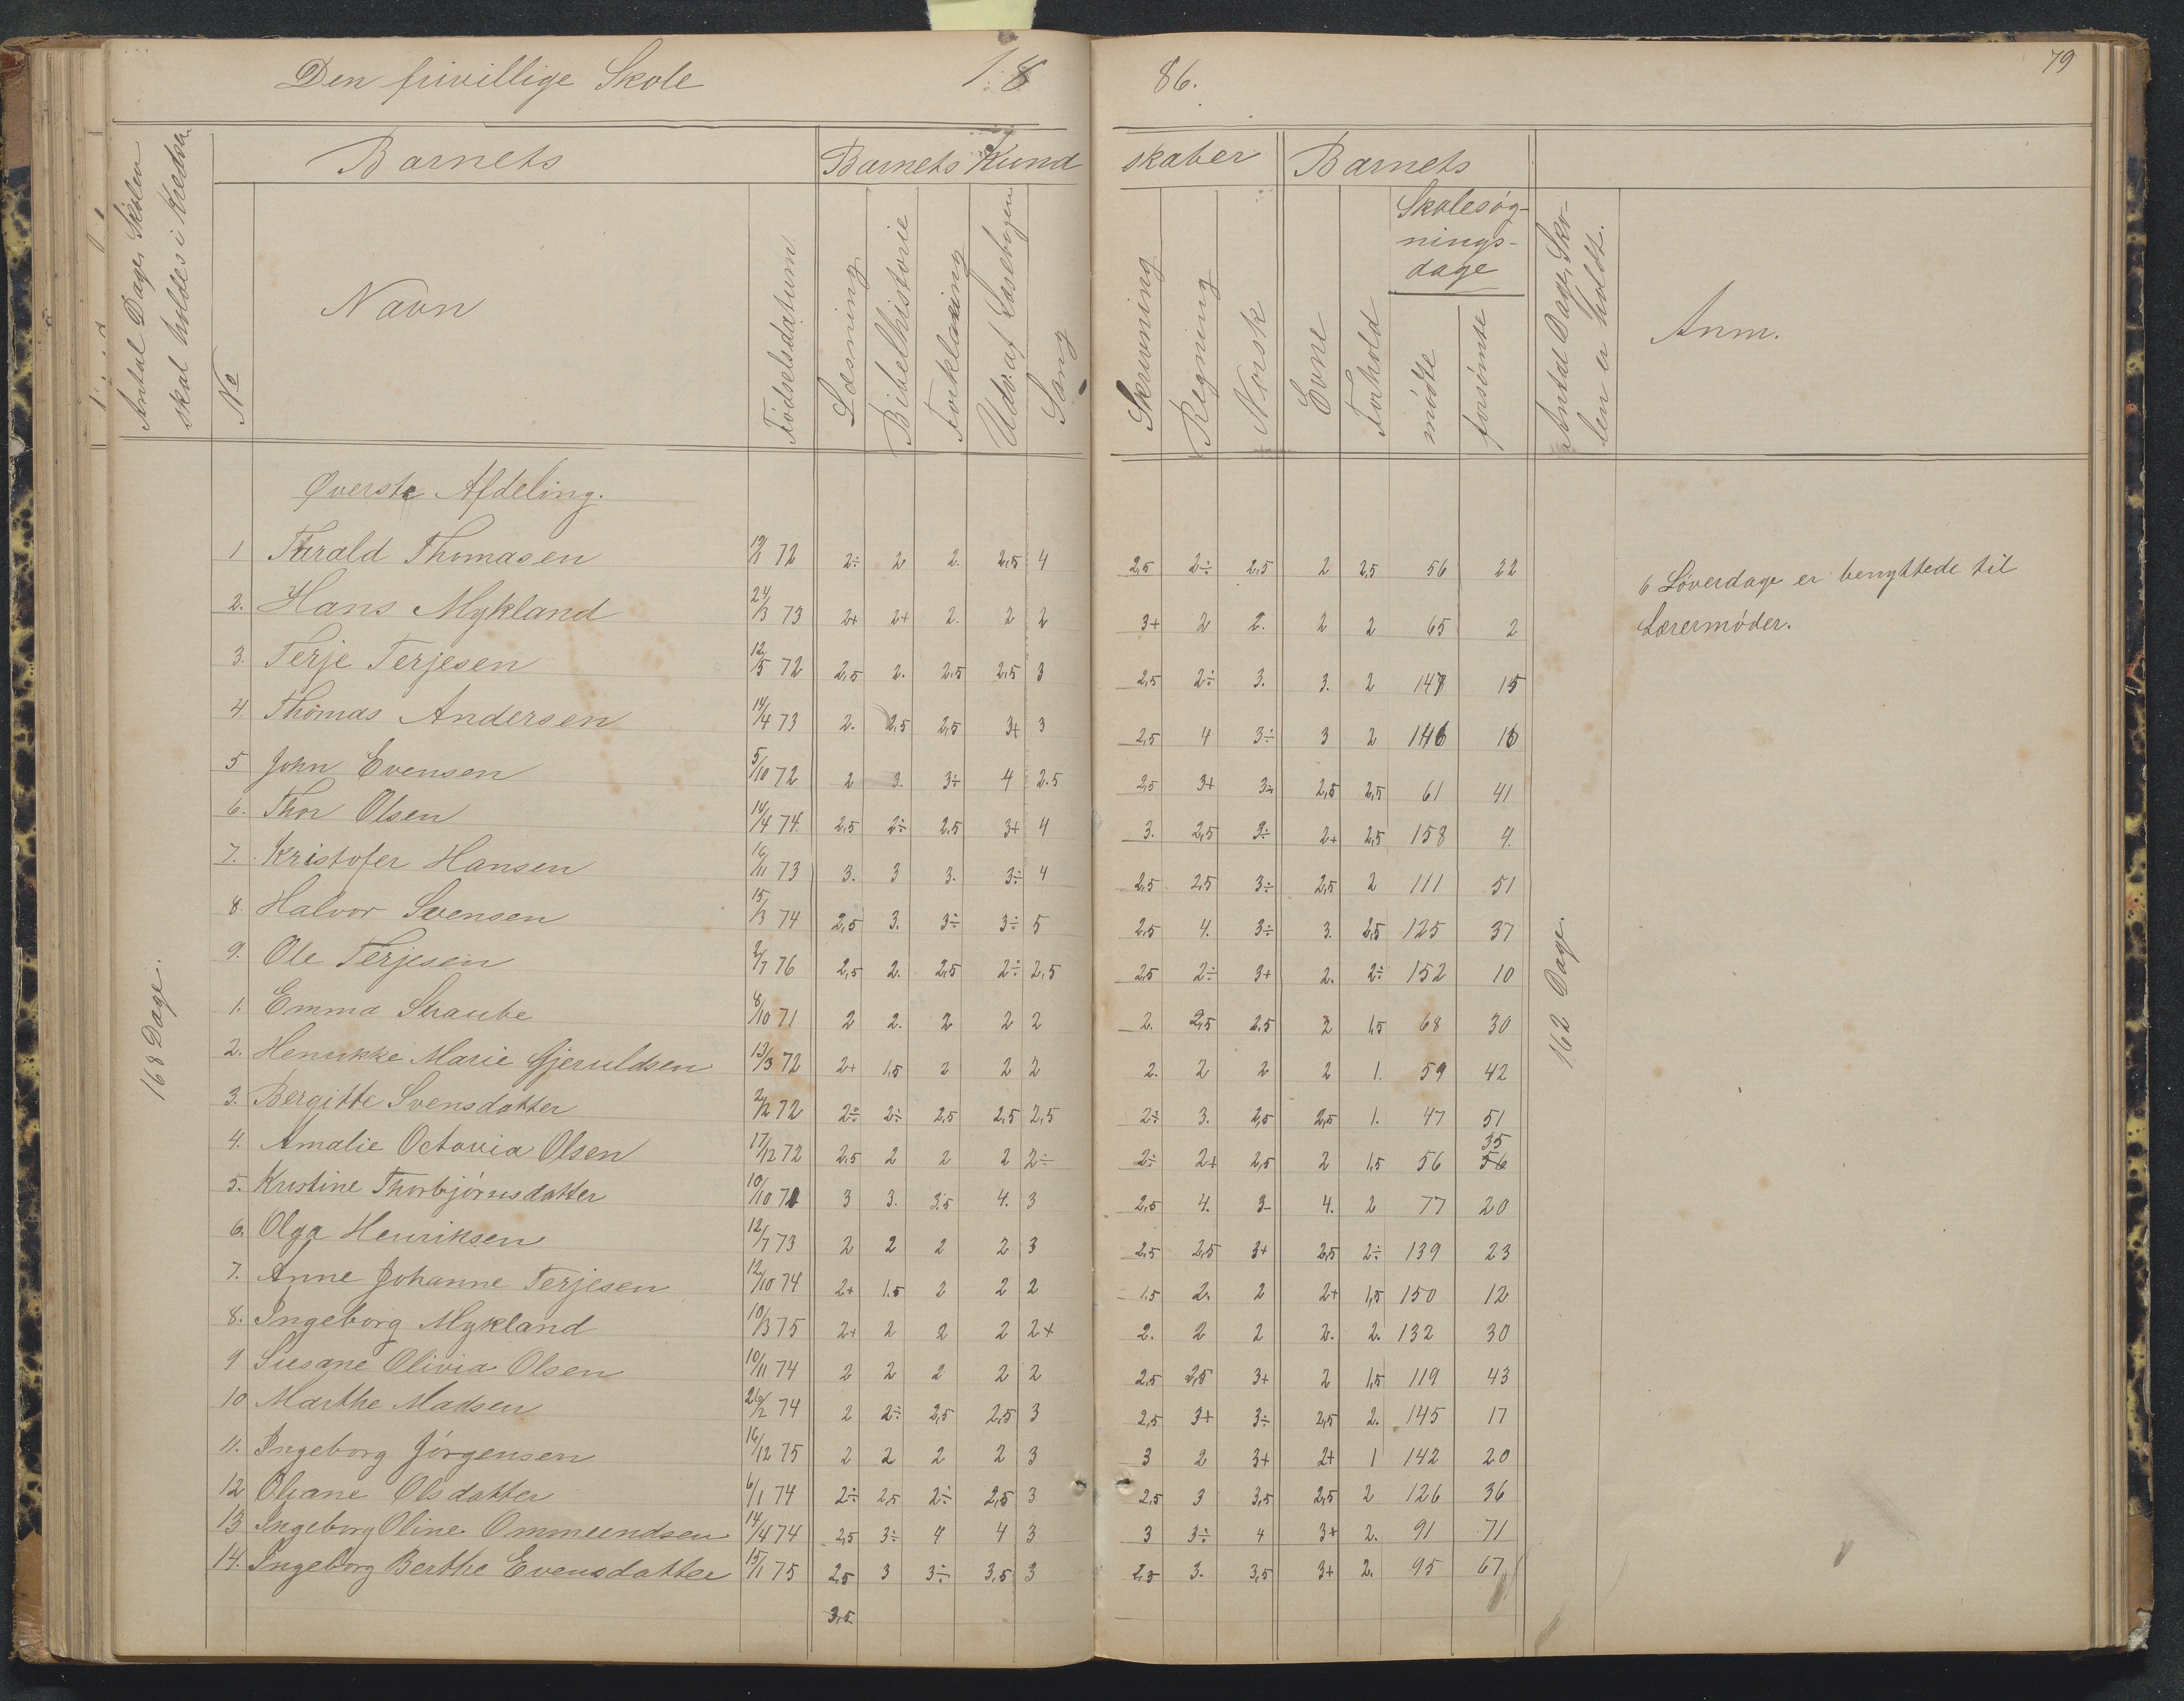 Den frivillige Skole 18 86. 79
Barnets Barnets Kund skaber Barnets
Antal Dage, Skolen
skal holdes i Kredsen
No
Navn
Fødselsdatum
Læsning
Bibelhistorie
Forklaring
Udv. af Læsebogen
Sang
Skrivning
Regning
Norsk
Evne
Forhold
Skolesøg-
nings-
dage
mødte
forsømte
Antal Dage, Sko-
len er holdt.
Anm.
168 Dage.
Øverste Afdeling.
1 Tarald Thomasen 19/1 72 2÷ 2 2. 2,5 4 2,5 2÷ 2,5 2 2,5 56 22
2. Hans Mykland 24/3 73 2+ 2+ 2. 2 2 3+ 2 2. 2 2 65 2
3. Terje Terjesen 12/5 72 2,5 2. 2,5 2,5 3 2,5 2÷ 3. 3. 2 147 15
4 Thomas Andersen 14/4 73 2. 2,5 2,5 3+ 3 2,5 4 3÷ 3 2 146 16
5 John Evensen 5/10 72 2 3. 3÷ 4 2.5 2,5 3+ 3÷ 2,5 2,5 61 41
6. Thor Olsen 14/4 74. 2,5 2÷ 2,5 3+ 4 3. 2,5 3÷ 2+ 2,5 158 4.
7. Kristofer Hansen 16/11 73 3. 3 3. 3÷ 4 2,5 2,5 3÷ 2,5 2 111 51
8. Halvor Svensen 15/3 74 2,5 3. 3÷ 3÷ 5 2,5 4. 3÷ 3. 2,5 125 37
9. Ole Terjesen 2/7 76 2,5 2. 2,5 2÷ 2,5 2,5 2÷ 3+ 2. 2÷ 152 10
1. Emma Straube 8/10 71 2 2. 2 2 2 2. 2,5 2.5 2 1,5 68 30
2. Henrikke Marie Gjeruldsen 13/3 72 2+ 1,5 2 2 2 2. 2 2 2 1. 59 42
3. Bergitte Svensdatter 2/12 72 2÷ 2÷ 2,5 2,5 2,5 2÷ 3. 2,5 2,5 1. 47 51
4. Amalie Octavia Olsen 17/12 72 2,5 2 2 2 2÷ 2÷ 2+ 2,5 2 1,5 56 35 56
5. Kristine Thorbjørnsdatter 10/10 72 3 3. 3.5 4. 3 2,5 4. 3- 4. 2 77 20
6. Olga Henriksen 12/7 73 2 2 2 2 3 2,5 2,5 3+ 2,5 2÷ 139 23
7. Anne Johanne Terjesen 12/10 74 2+ 1.5 2 2 2 1.5 2. 2 2+ 1,5 150 12
8. Ingeborg Mykland 10/3 75 2+ 2 2 2 2+ 2. 2 2 2. 2. 132 30
9 Susane Olivia Olsen 10/11 74 2 2 2 2 2 2.5 2,5 3+ 2 1,5 119 43
10 Marthe Madsen 26/2 74 2 2÷ 2,5 2,5 3 2,5 3+ 3÷ 2,5 2. 145 17
11. Ingeborg Jørgensen 16/12 75 2 2 2 2 3 3 2 3+ 2+ 1 142 20
12 Oliane Olsdatter 6/1 74 2÷ 2,5 2÷ 2,5 3 2,5 3 3,5 2,5 2 126 36
13 Ingeborg Oline Ommundsen 14/4 74 2,5 3÷ 4 4 3 3 3÷ 4 3+ 2. 91 71
14. Ingeborg Berthe Evensdatter 15/1 75 2,5 3 3÷ 3,5 3 2,5 3. 3,5 3+ 2. 95 67
3,5
162 Dage.
6 Løverdage er benyttede til
Lærermøder.